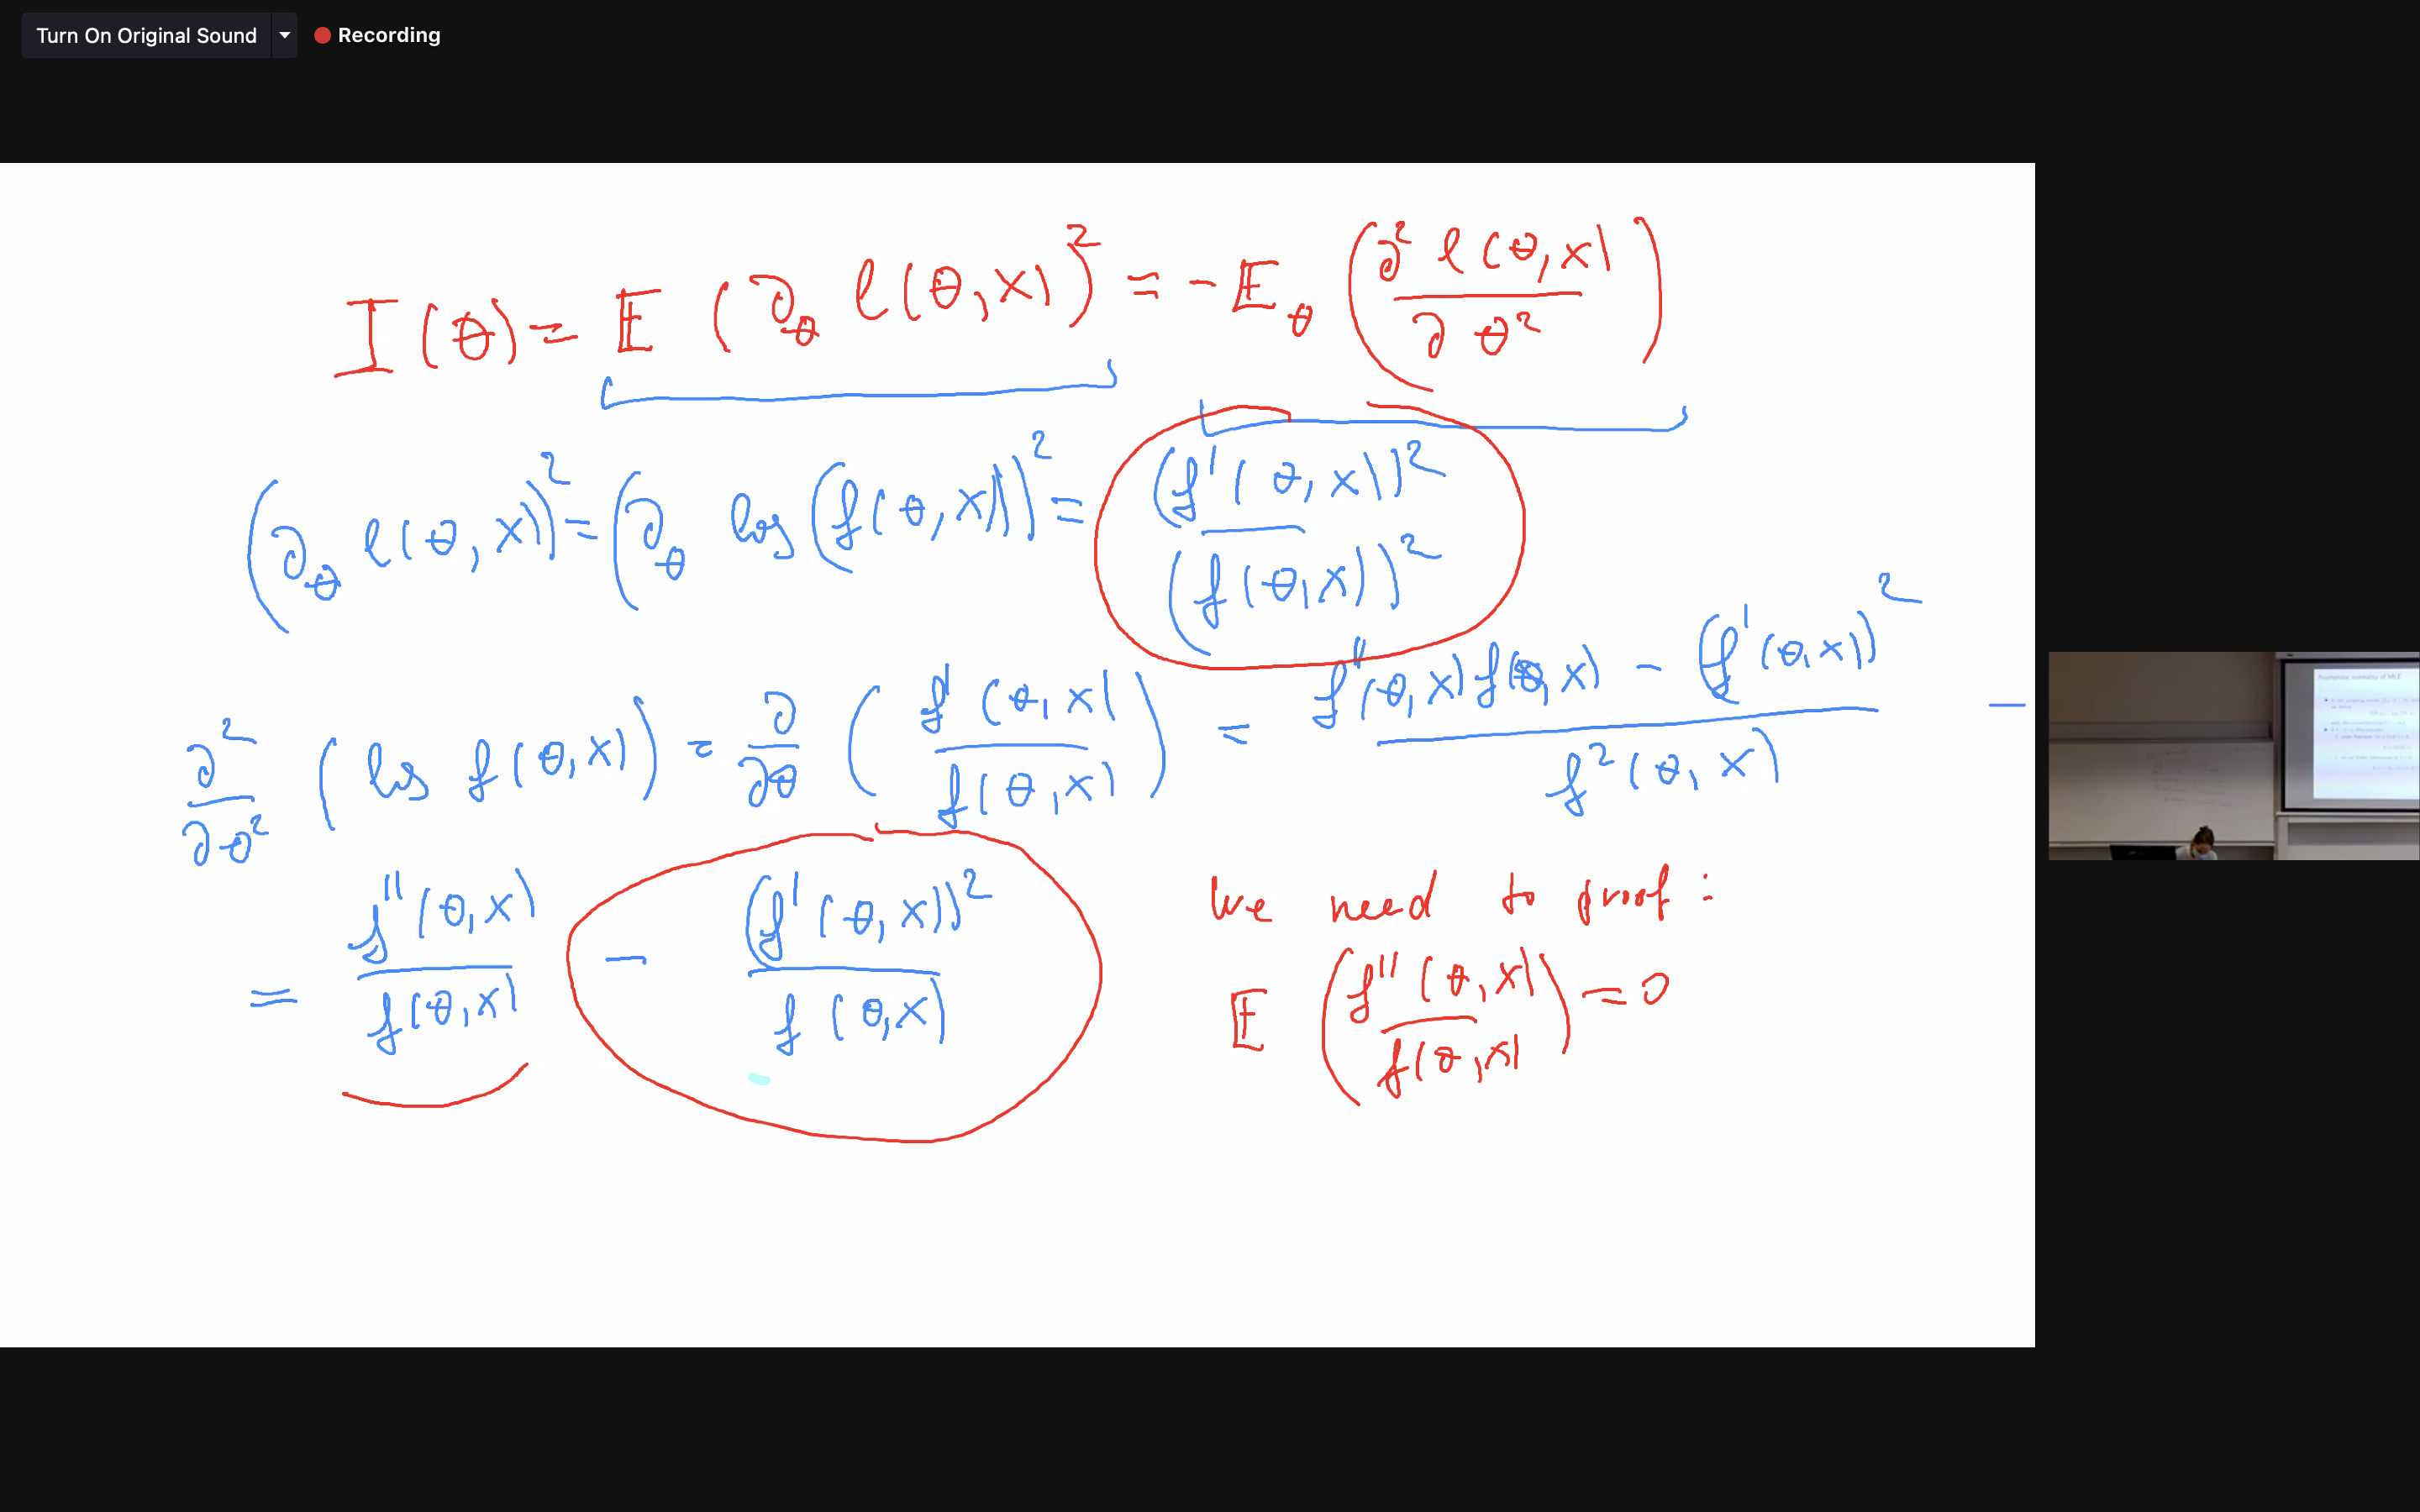 Turn On Original Sound
Recording
I(θ) = 𝔼 (∂_θ l(θ,x))² = -𝔼_θ (∂² l(θ,x) / ∂θ²)
(∂_θ l(θ,x))² = (∂_θ log(f(θ,x)))² = (f'(θ,x))² / (f(θ,x))²
∂²/∂θ² (log f(θ,x)) = ∂/∂θ (f'(θ,x) / f(θ,x)) = (f''(θ,x) f(θ,x) - (f'(θ,x))²) / f²(θ,x) -
= f''(θ,x) / f(θ,x) - (f'(θ,x))² / f(θ,x)
We need to proof :
𝔼 (f''(θ,x) / f(θ,x)) = 0
Asymptotic normality of MLE